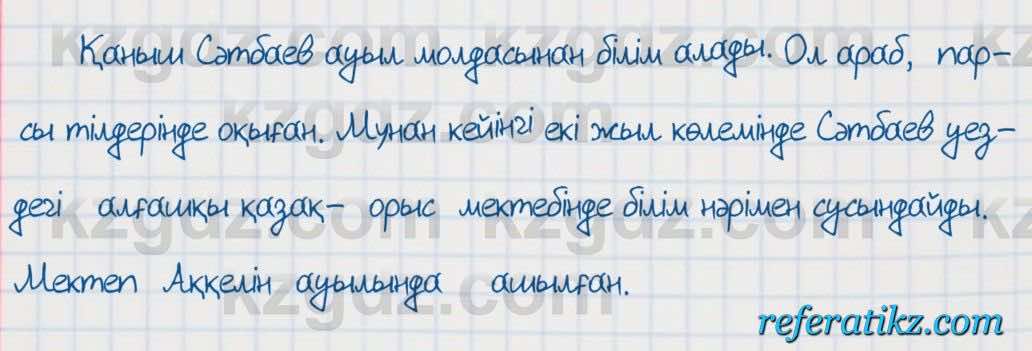 Қаныш Сәтбаев ауыл молдасынан білім алады. Ол араб, пар-
сы тілдерінде оқыған. Мунан кейінгі екі жыл көлемінде Сәтбаев уез-
дегі алғашқы қазақ- орыс мектебінде білім нәрімен сусындайды.
Мектеп Аққелін ауылында ашылған.
kzgdz.com
referatikz.com